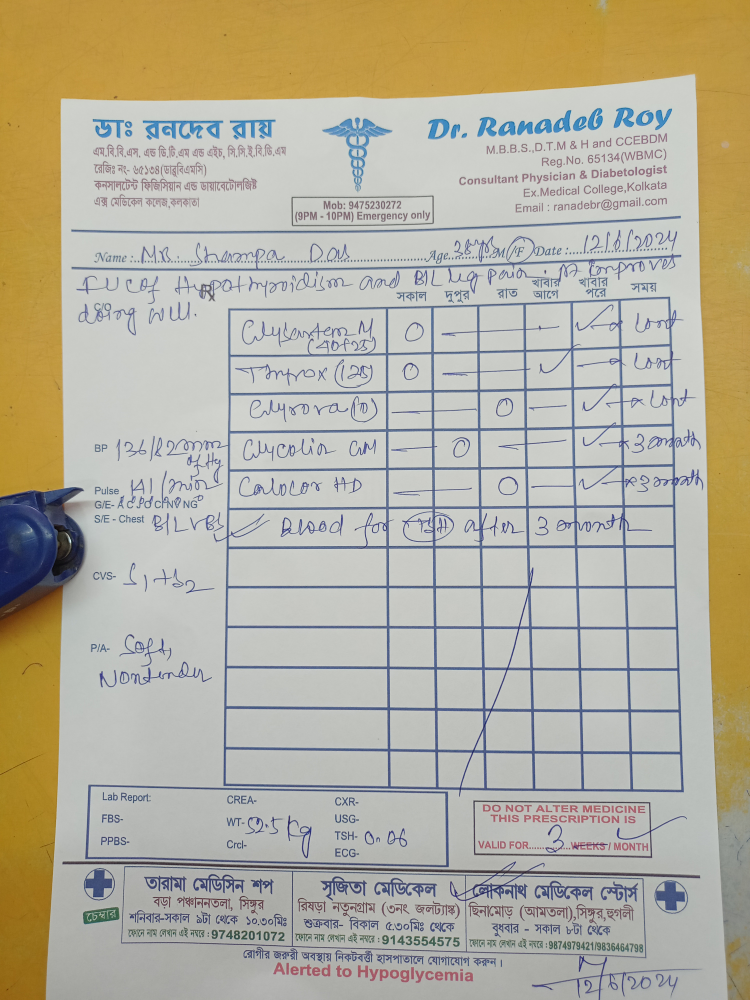 ডাঃ রনদেব রায়
এম.বি.বি.এস, এন্ড ডি.টি.এম এন্ড এইচ, সি.সি.ই.বি.ডি.এম
রেজিঃ নং- ৬৫১৩৪(ডাব্লুবিএমসি)
কনসালটেন্ট ফিজিসিয়ান এন্ড ডায়াবেটোলজিষ্ট
এক্স মেডিকেল কলেজ,কলকাতা
Mob: 9475230272
(9PM - 10PM) Emergency only
Dr. Ranadeb Roy
M.B.B.S.,D.T.M & H and CCEBDM
Reg.No. 65134(WBMC)
Consultant Physician & Diabetologist
Ex.Medical College,Kolkata
Email : ranadebr@gmail.com
Name : Mrs. Shampa Das Age 28 yrs M/F Date : 12/6/2024
FUC of Hypothyroidism and B/L leg pain. Improves
doing well.
সকাল দুপুর রাত খাবার আগে খাবার পরে সময়
(40+25) O — ✓
(125) O — ✓
(10) — O — ✓
GM — O — ✓ x 3 month
HD — O — ✓ x 3 month
✓ Blood for TSH after 3 month
BP 136/82 mm of Hg
Pulse /min
G/E-
S/E - Chest B/L VBS
CVS- S1+S2
P/A- Soft,
Nontender
Lab Report:
FBS-
PPBS-
CREA-
WT- 52.5 Kg
Crcl-
CXR-
USG-
TSH- 0.06
ECG-
DO NOT ALTER MEDICINE
THIS PRESCRIPTION IS
VALID FOR......3...WEEKS / MONTH
চেম্বার
তারামা মেডিসিন শপ
বড়া পঞ্চাননতলা, সিঙ্গুর
শনিবার-সকাল ৯টা থেকে ১০.৩০মিঃ
ফোনে নাম লেখান এই নম্বরে : 9748201072
সৃজিতা মেডিকেল
রিষড়া নতুনগ্রাম (৩নং জলট্যাঙ্ক)
শুক্রবার- বিকাল ৫.৩০মিঃ থেকে
ফোনে নাম লেখান এই নম্বরে : 9143554575
লোকনাথ মেডিকেল স্টোর্স
ছিনামোড় (আমতলা),সিঙ্গুর,হুগলী
বুধবার - সকাল ৮টা থেকে
ফোনে নাম লেখান এই নম্বরে :9874979421/9836464798
রোগীর জরুরী অবস্থায় নিকটবর্ত্তী হাসপাতালে যোগাযোগ করুন।
Alerted to Hypoglycemia
12/6/2024